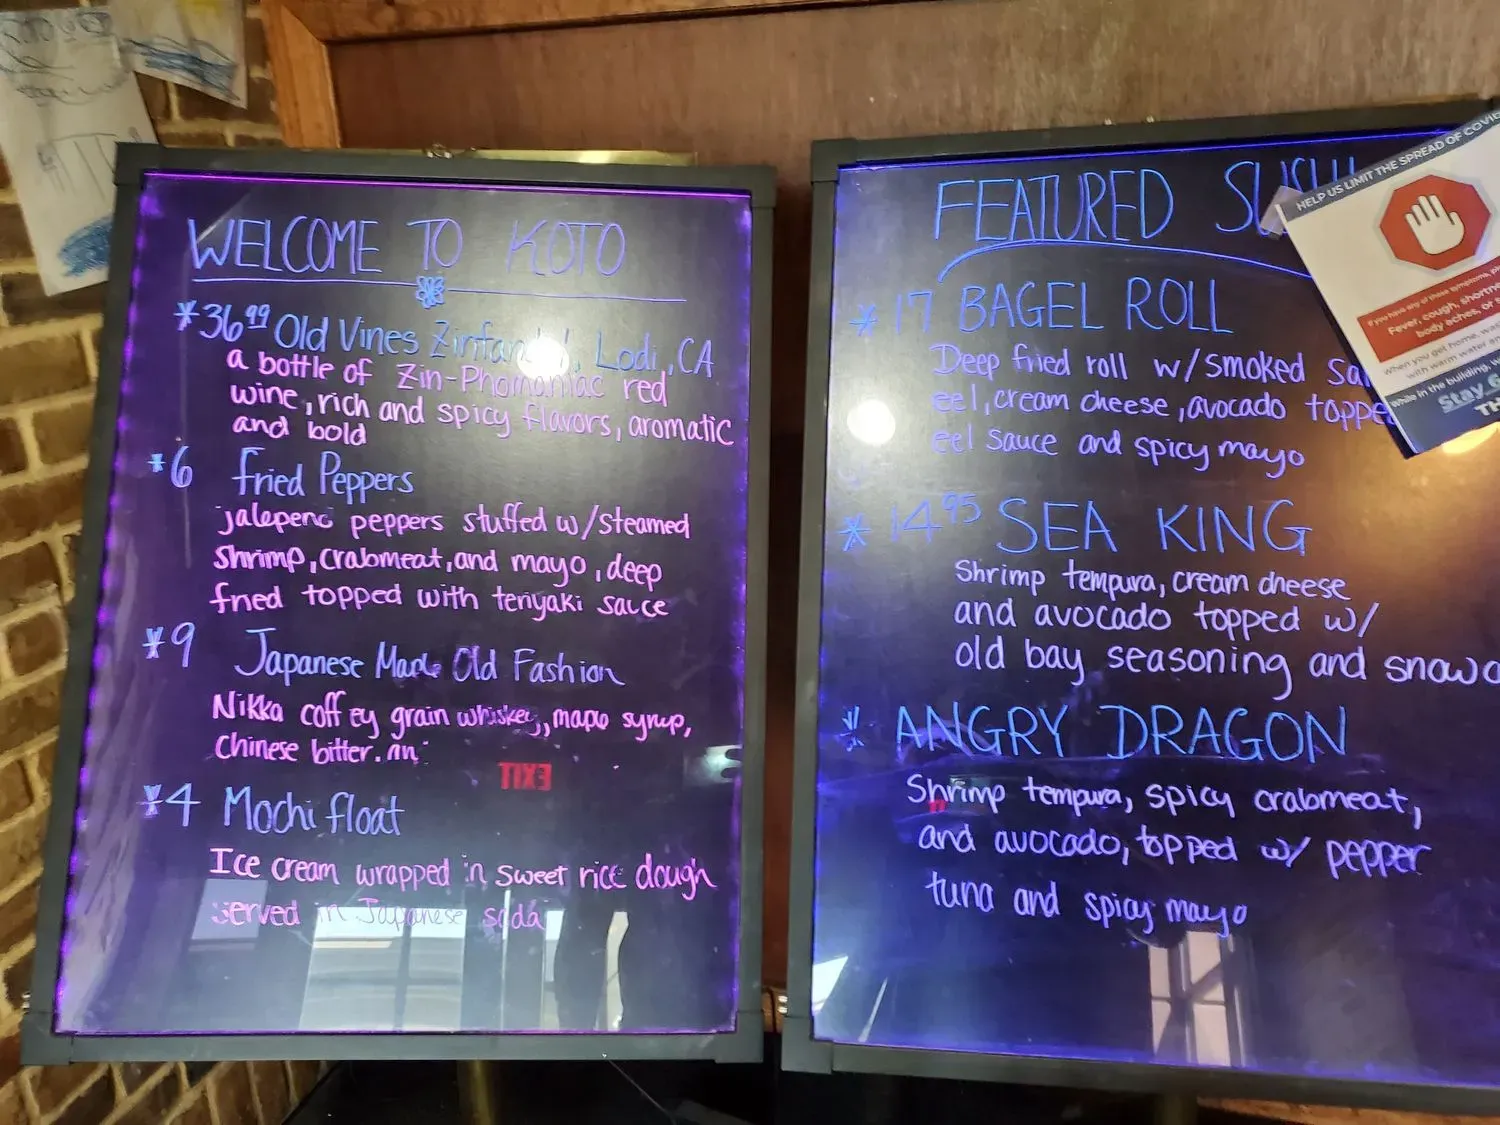 WELCOME TO KOTO
*36⁹⁹ Old Vines Zinfandel, Lodi, CA
a bottle of Zin-Phomaniac red
wine, rich and spicy flavors, aromatic
and bold
*6 Fried Peppers
jalepeno peppers stuffed w/steamed
shrimp, crabmeat, and mayo, deep
fried topped with teriyaki sauce
*9 Japanese Made Old Fashion
Nikka coffey grain whiskey, maple syrup,
Chinese bitter.
EXIT
*4 Mochi float
Ice cream wrapped in sweet rice dough
served in Japanese soda
FEATURED SUSHI
*17 BAGEL ROLL
Deep fried roll w/smoked
eel, cream cheese, avocado
eel sauce and spicy mayo
*14⁹⁵ SEA KING
Shrimp tempura, cream cheese
and avocado topped w/
old bay seasoning and
* ANGRY DRAGON
Shrimp tempura, spicy crabmeat,
and avocado, topped w/ pepper
tuna and spicy mayo
HELP US LIMIT THE SPREAD OF
If you have any of these symptoms,
Fever, cough,
body aches, or
When you get home,
with warm water
While in the building,
Stay 6